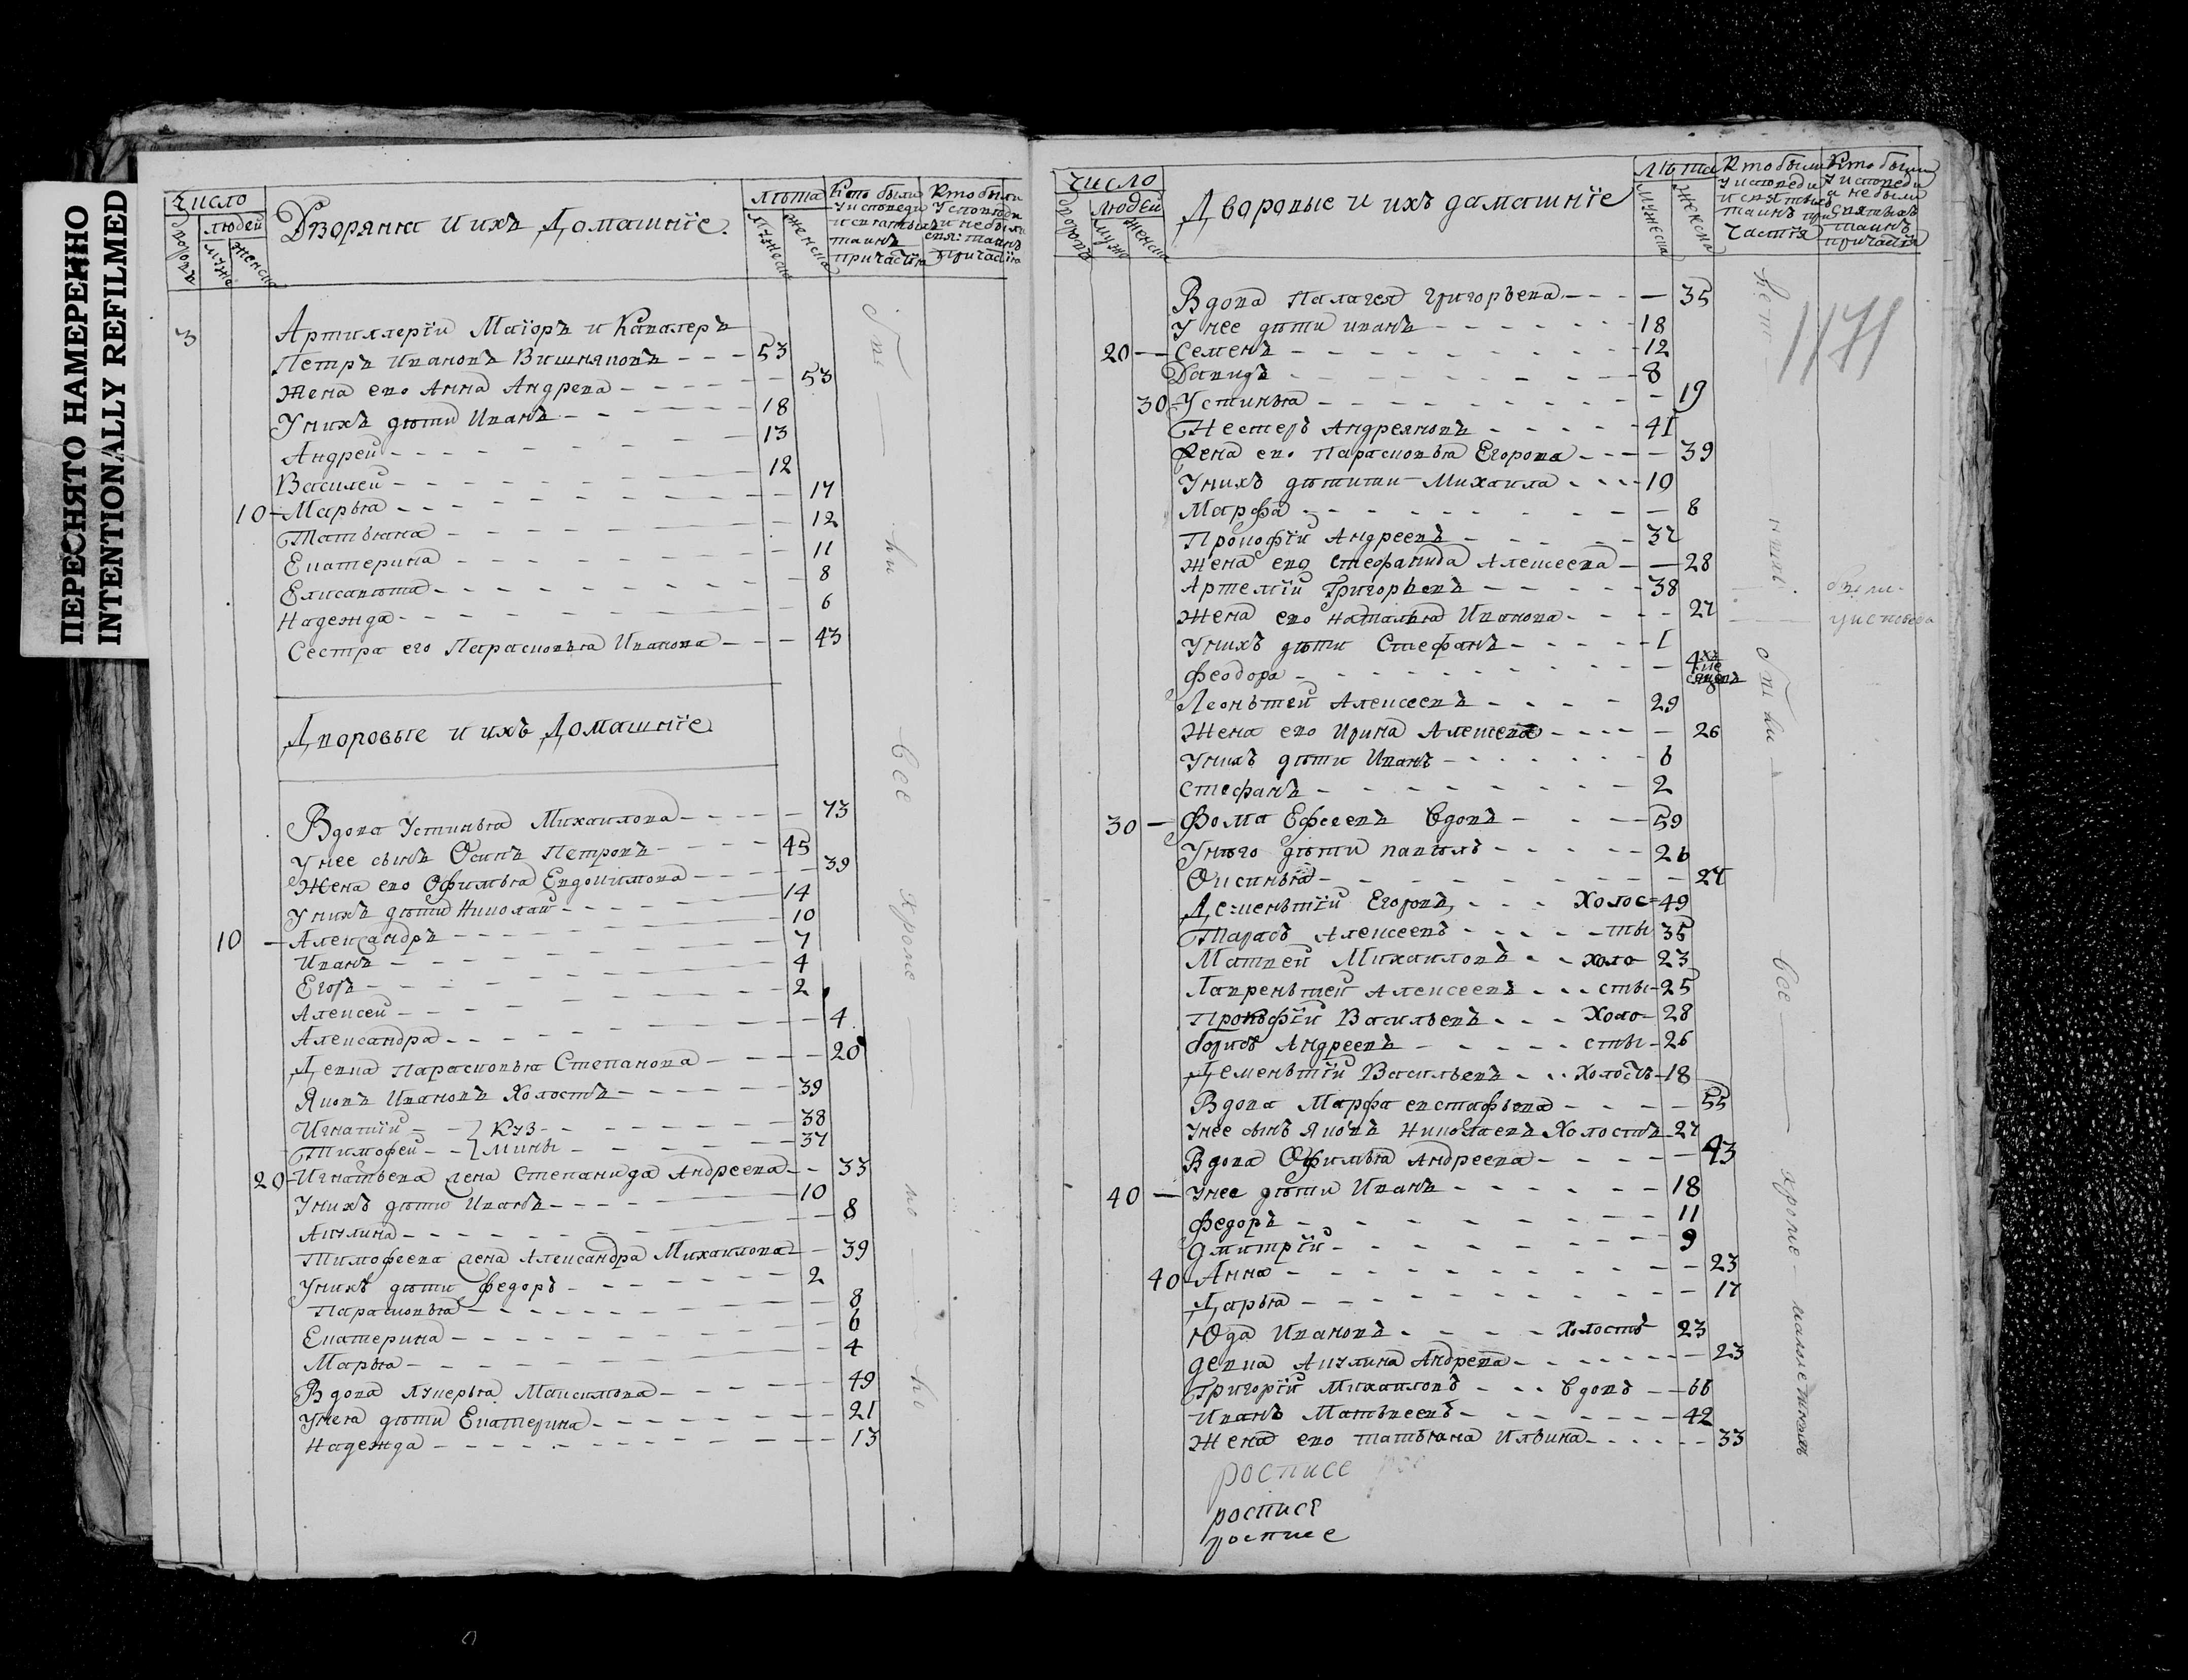 ПЕРЕСНЯТО НАМЕРЕННО
INTENTIONALLY REFILMED
Число
дворовъ
людей
мужс
женска
Дворяня и ихъ Домашніе.
лѣта
мужеска
женска
Кто были у исповеди и святыхъ таинъ причастія
Кто были у исповеди и не были свя: таинъ причастія
3
Артиллеріи Маіоръ и Кавалеръ
Петръ Ивановъ Вишняковъ - - - 53
Жена ево Анна Андрева - - - 53
Унихъ дѣти Иванъ - - - 18
Андрей - - - 13
Василей - - - 12
10 - Марья - - - 17
Татьяна - - - 12
Екатерина - - - 11
Елисавѣта - - - 8
Надежда - - - 6
Сестра его Парасковья Иванова - - - 43
Дворовые и ихъ Домашніе
Вдова Устинья Михаилова - - - 73
Унее сынъ Осипъ Петровъ - - - 45
Жена ево Офимья Евдокимова - - - 39
Унихъ дѣти Николай - - - 14
10 - Александръ - - - 10
Иванъ - - - 7
Егоръ - - - 4
Алексей - - - 2
Александра - - - 4
Девка Парасковья Степанова - - - 20
Яковъ Ивановъ Холостъ - - - 39
Игнатій - - Куз - - - 38
Тимофей - - мины - - - 37
20 - Игнатьева жена Степанида Андреева - - 33
Унихъ дѣти Иванъ - - - 10
Акулина - - - 8
Тимофеева жена Александра Михаилова - 39
Унихъ дѣти Федоръ - - - 2
Парасковья - - - 8
Екатерина - - - 6
Марья - - - 4
Вдова Лукерья Максимова - - - 49
Унея дѣти Екатерина - - - 21
Надежда - - - 13
все
кроме
Число
дворовъ
людей
мужс
женска
Дворовые и ихъ дамашніе
лѣта
мужеска
женска
Кто были у исповеди и святыхъ таинъ причастія
Кто были у исповеди а не были святыхъ таинъ причастія
1171
Вдова Палагея Григорьева - - - 35
Унее дѣти иванъ - - - 18
20 - Семенъ - - - 12
Давидъ - - - 8
30 - Устинья - - - 19
Нестеръ Андреяновъ - - - 41
Жена ево Парасковья Егорова - - - 39
Унихъ дѣтити Михаила - - - 10
Марфа - - - 8
Прокофій Андреевъ - - - 32
Жена ево Стефанида Алексеева - - 28
Артемій Григорьевъ - - - 38
Жена ево Наталья Иванова - - - 27
Унихъ дѣти Стефанъ - - - 1
Феодора - - - 4хъ месяцевъ
Леонътей Алексеевъ - - - 29
Жена ево Ирина Алексева - - - 26
Унихъ дѣти Иванъ - - - 6
Стефанъ - - - 2
30 - Фома Ефсеевъ вдовъ - - - 59
Унѣго дѣти павѣлъ - - - 26
Оксинья - - - 27
Деменьтій Егоровъ - - - Холос- 49
Тарасъ Алексеевъ - - - ты 35
Матвей Михаиловъ - - холо- 23
Лавреньтей Алексеевъ - - - сты- 25
Прокофій Васильевъ - - - Холо- 28
борисъ Андреевъ - - - сты- 26
Деменьтій Васильевъ - - Холостъ- 18
Вдова Марфа евстафьева - - - 55
Унее сынъ Яковъ Николаевъ Холостъ- 27
Вдова Офимья Андреева - - - 43
40 - Унее дѣти Иванъ - - - 18
Федоръ - - - 11
Дмитрій - - - 9
40 - Анна - - - 23
Дарья - - - 17
Юда Ивановъ - - - холостъ 23
девка Акулина Андрева - - - 23
Григорій Михаиловъ - - вдовъ - 66
Иванъ Матьвеевъ - - - 42
Жена ево татьяна Ильина - - - 33
росписе
росписе
росписе
все
кроме
малолетныхъ